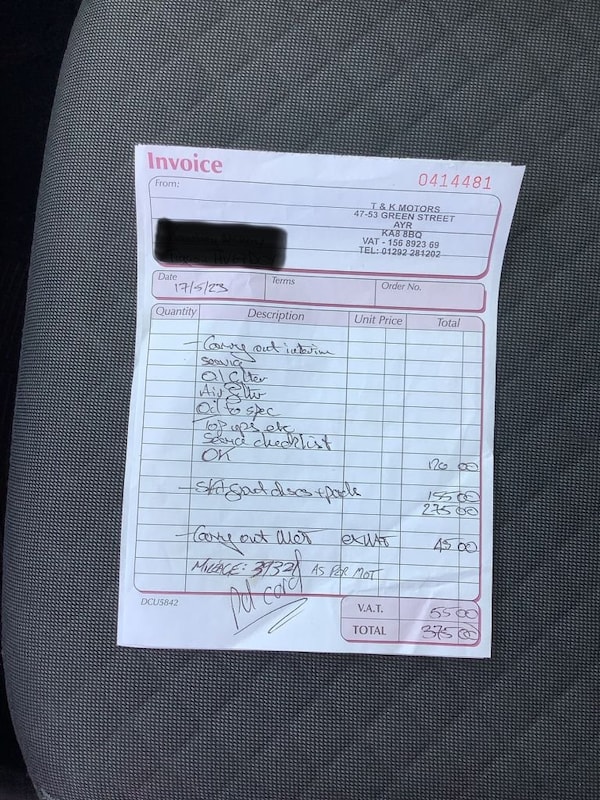 Invoice
0414481
From:
T & K MOTORS
47-53 GREEN STREET
AYR
KA8 8BQ
VAT - 156 8923 69
TEL: 01292 281202
Date Terms Order No.
17/5/23
Quantity Description Unit Price Total
- Carry out interim
service
Oil filter
Air filter
Oil to spec
Top ups etc
Service checklist
OK 120 00
- discs + pads 155 00
275 00
- Carry out MOT exVAT 45 00
MILEAGE: AS PER MOT
Pd card
DCU5842
V.A.T. 55 00
TOTAL 375 00